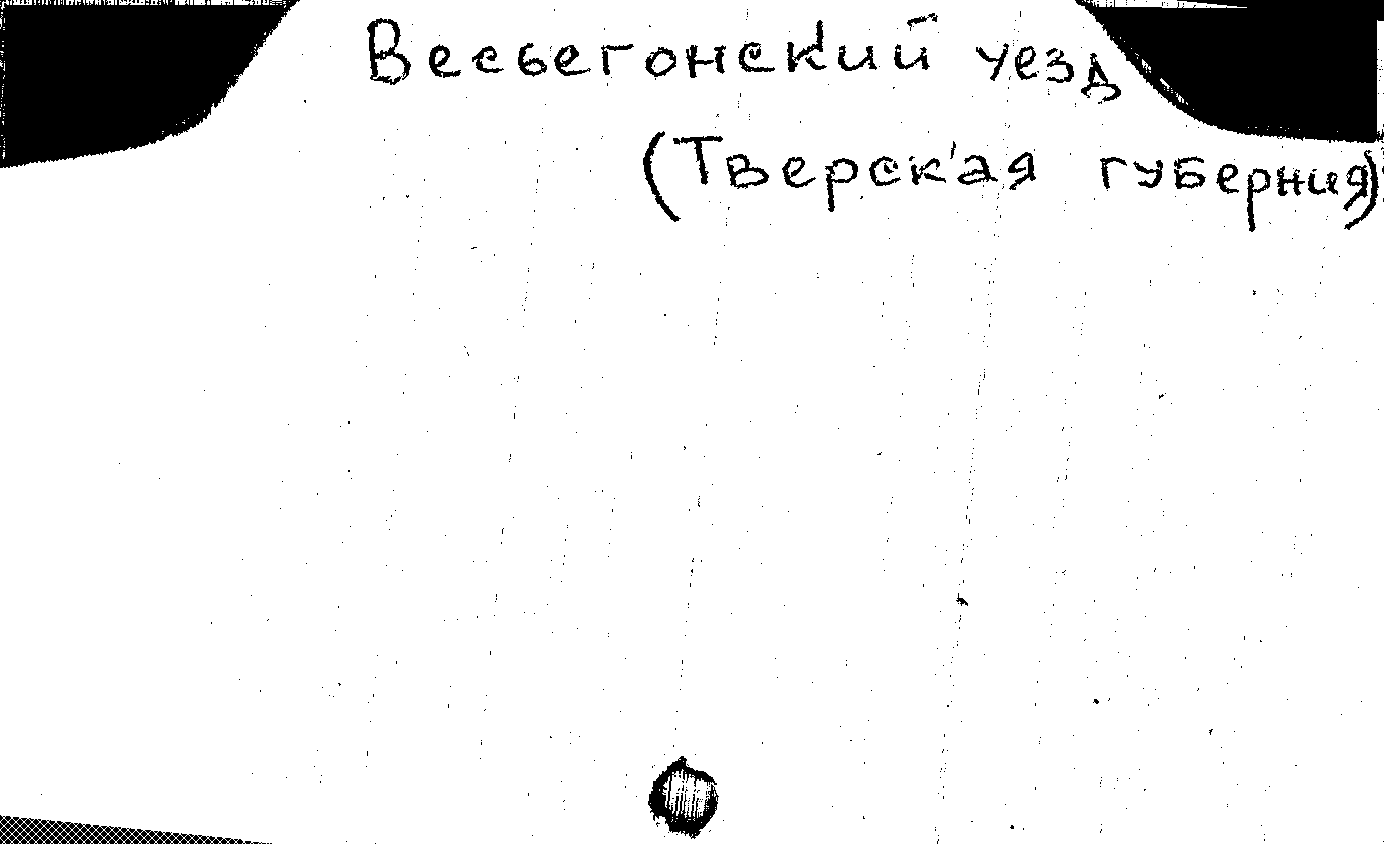 Весьегонский уезд
(Тверская губерния)